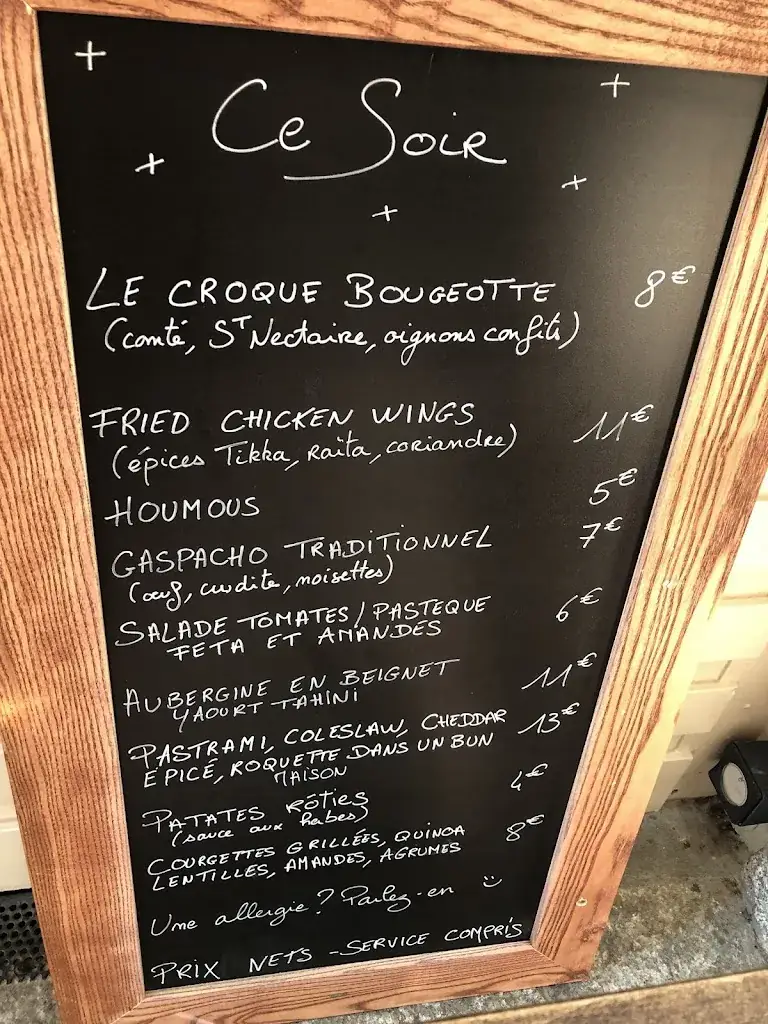 Ce Soir
LE CROQUE BOUGEOTTE 8€
(comté, St Nectaire, oignons confits)
FRIED CHICKEN WINGS 11€
(épices Tikka, raïta, coriandre)
HOUMOUS 5€
GASPACHO TRADITIONNEL 7€
(œuf, crudité, noisettes)
SALADE TOMATES/PASTEQUE 6€
FETA ET AMANDES
AUBERGINE EN BEIGNET 11€
YAOURT TAHINI
PASTRAMI, COLESLAW, CHEDDAR 13€
ÉPICÉ, ROQUETTE DANS UN BUN
MAISON
PATATES RÔTIES 4€
(sauce aux herbes)
COURGETTES GRILLÉES, QUINOA 8€
LENTILLES, AMANDES, AGRUMES
Une allergie? Parlez-en
PRIX NETS - SERVICE COMPRIS